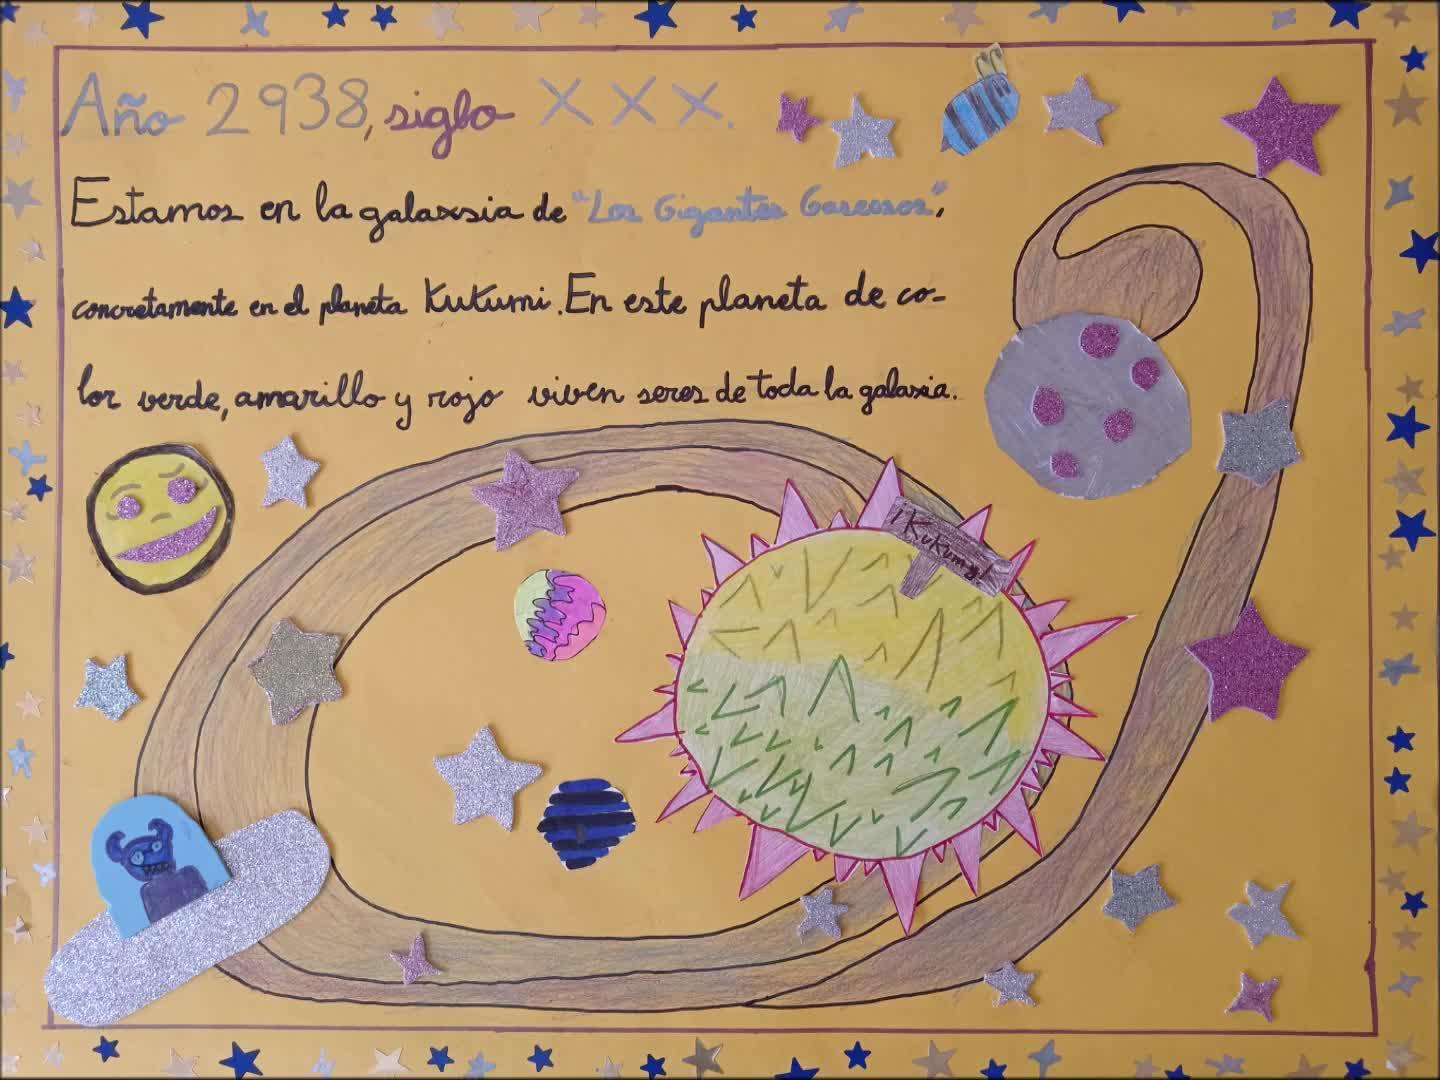 Año 2938, siglo XXX.
Estamos en la galaxsia de "Los Gigantes Gaseosos",
concretamente en el planeta Kukumi. En este planeta de co-
lor verde, amarillo y rojo viven seres de toda la galaxia.
¡Kukumy!